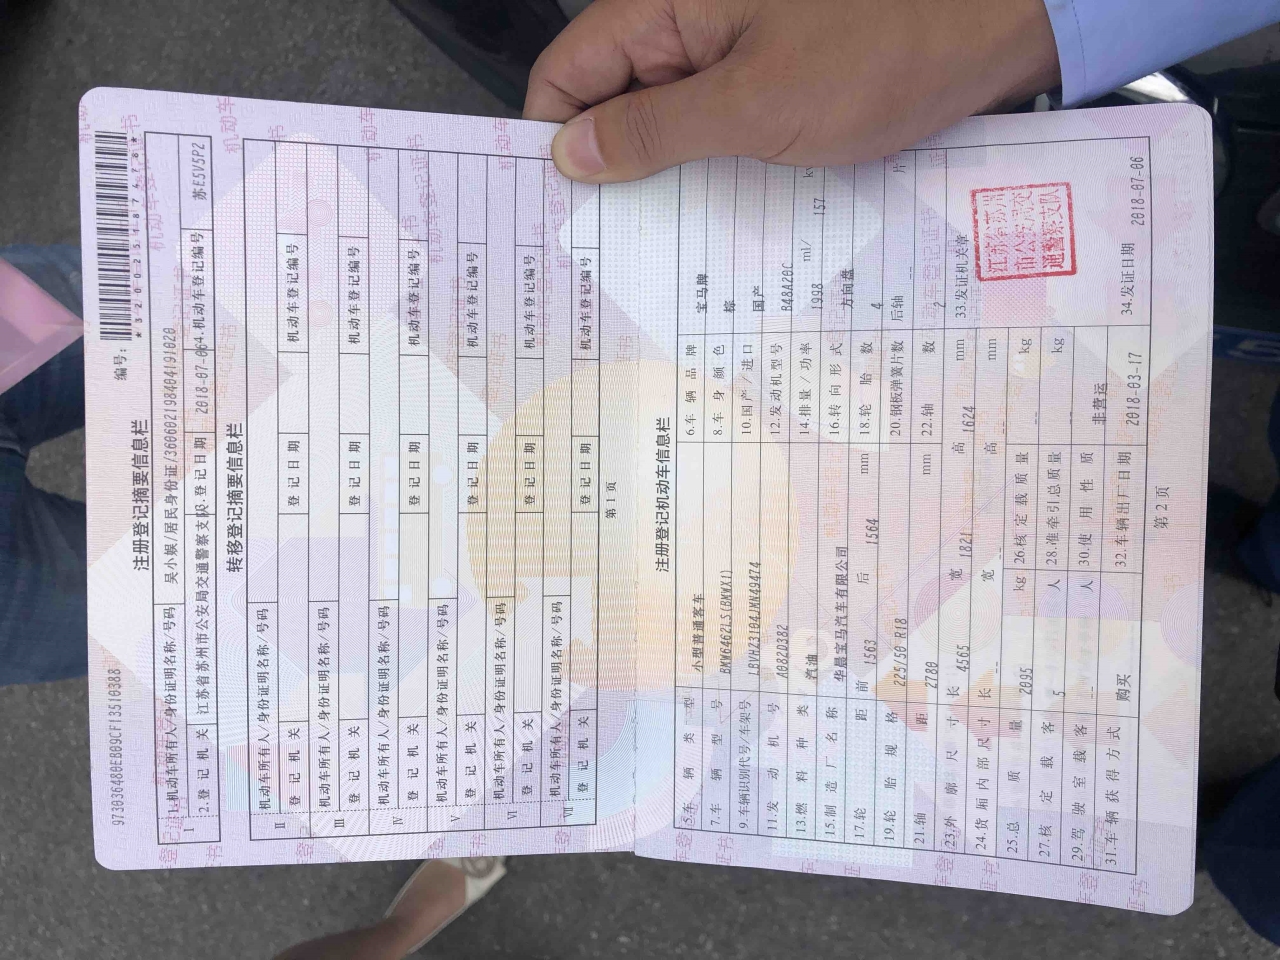 973036480EB09CF13510388
编号:
*320025187478*
注册登记摘要信息栏
I 1.机动车所有人/身份证明名称/号码 吴小娱/居民身份证/360602198404191020
2.登记机关 江苏省苏州市公安局交通警察支队 3.登记日期 2018-07-06 4.机动车登记编号 苏E5V5P2
转移登记摘要信息栏
II 机动车所有人/身份证明名称/号码
登记机关 登记日期 机动车登记编号
III 机动车所有人/身份证明名称/号码
登记机关 登记日期 机动车登记编号
IV 机动车所有人/身份证明名称/号码
登记机关 登记日期 机动车登记编号
V 机动车所有人/身份证明名称/号码
登记机关 登记日期 机动车登记编号
VI 机动车所有人/身份证明名称/号码
登记机关 登记日期 机动车登记编号
VII 机动车所有人/身份证明名称/号码
登记机关 登记日期 机动车登记编号
第1页
注册登记机动车信息栏
5.车辆类型 小型普通客车 6.车辆品牌 宝马牌
7.车辆型号 BMW6462LS(BMWX1) 8.车身颜色 棕
9.车辆识别代号/车架号 LBVHZ3104JMN49474 10.国产/进口 国产
11.发动机号 A082D382 12.发动机型号 B48A20C
13.燃料种类 汽油 14.排量/功率 1998 ml/ 157
15.制造厂名称 华晨宝马汽车有限公司 16.转向形式 方向盘
17.轮距 前 1563 后 1564 mm 18.轮胎数 4
19.轮胎规格 225/50 R18 20.钢板弹簧片数 后轴 -- 片
21.轴距 2780 mm 22.轴数 2
23.外廓尺寸 长 4565 宽 1821 高 1624 mm 33.发证机关章
24.货厢内部尺寸 长 -- 宽 -- 高 -- mm
江苏省苏州
市公安局交
通警察支队
25.总质量 2095 kg 26.核定载质量 -- kg
27.核定载客 5 人 28.准牵引总质量 -- kg
29.驾驶室载客 -- 人 30.使用性质 非营运
31.车辆获得方式 购买 32.车辆出厂日期 2018-03-17 34.发证日期 2018-07-06
第2页